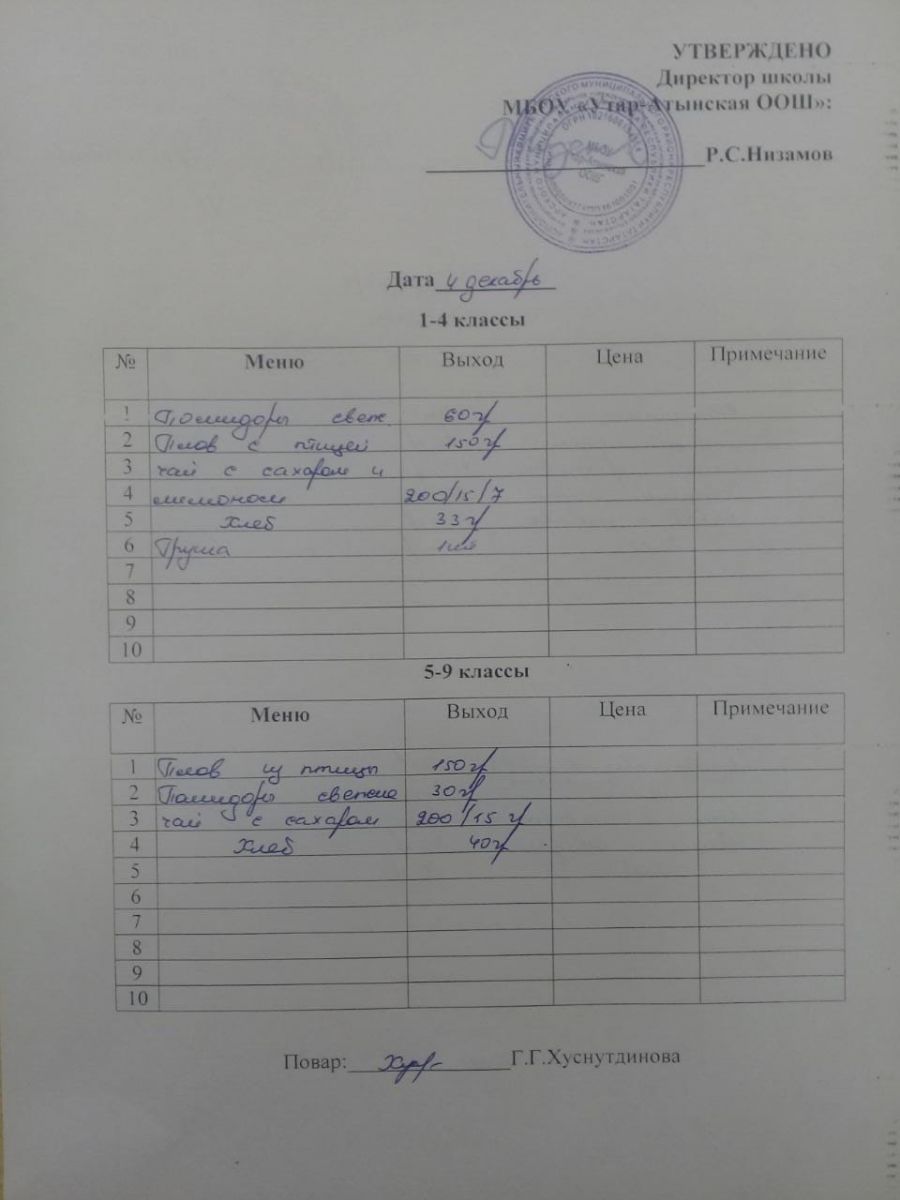 УТВЕРЖДЕНО
Директор школы
МБОУ «Утар-Атынская ООШ»:
Р.С.Низамов
Дата 4 декабрь
1-4 классы
№ Меню Выход Цена Примечание
1 Помидоры свеж. 60г
2 Плов с птицей 150г
3 чай с сахаром и
4 лимоном 200/15/7
5 Хлеб 33г
6 Груша 1шт
7
8
9
10
5-9 классы
№ Меню Выход Цена Примечание
1 Плов из птицы 150г
2 Помидоры свежие 30г
3 чай с сахаром 200/15 г
4 Хлеб 40г
5
6
7
8
9
10
Повар: Г.Г.Хуснутдинова